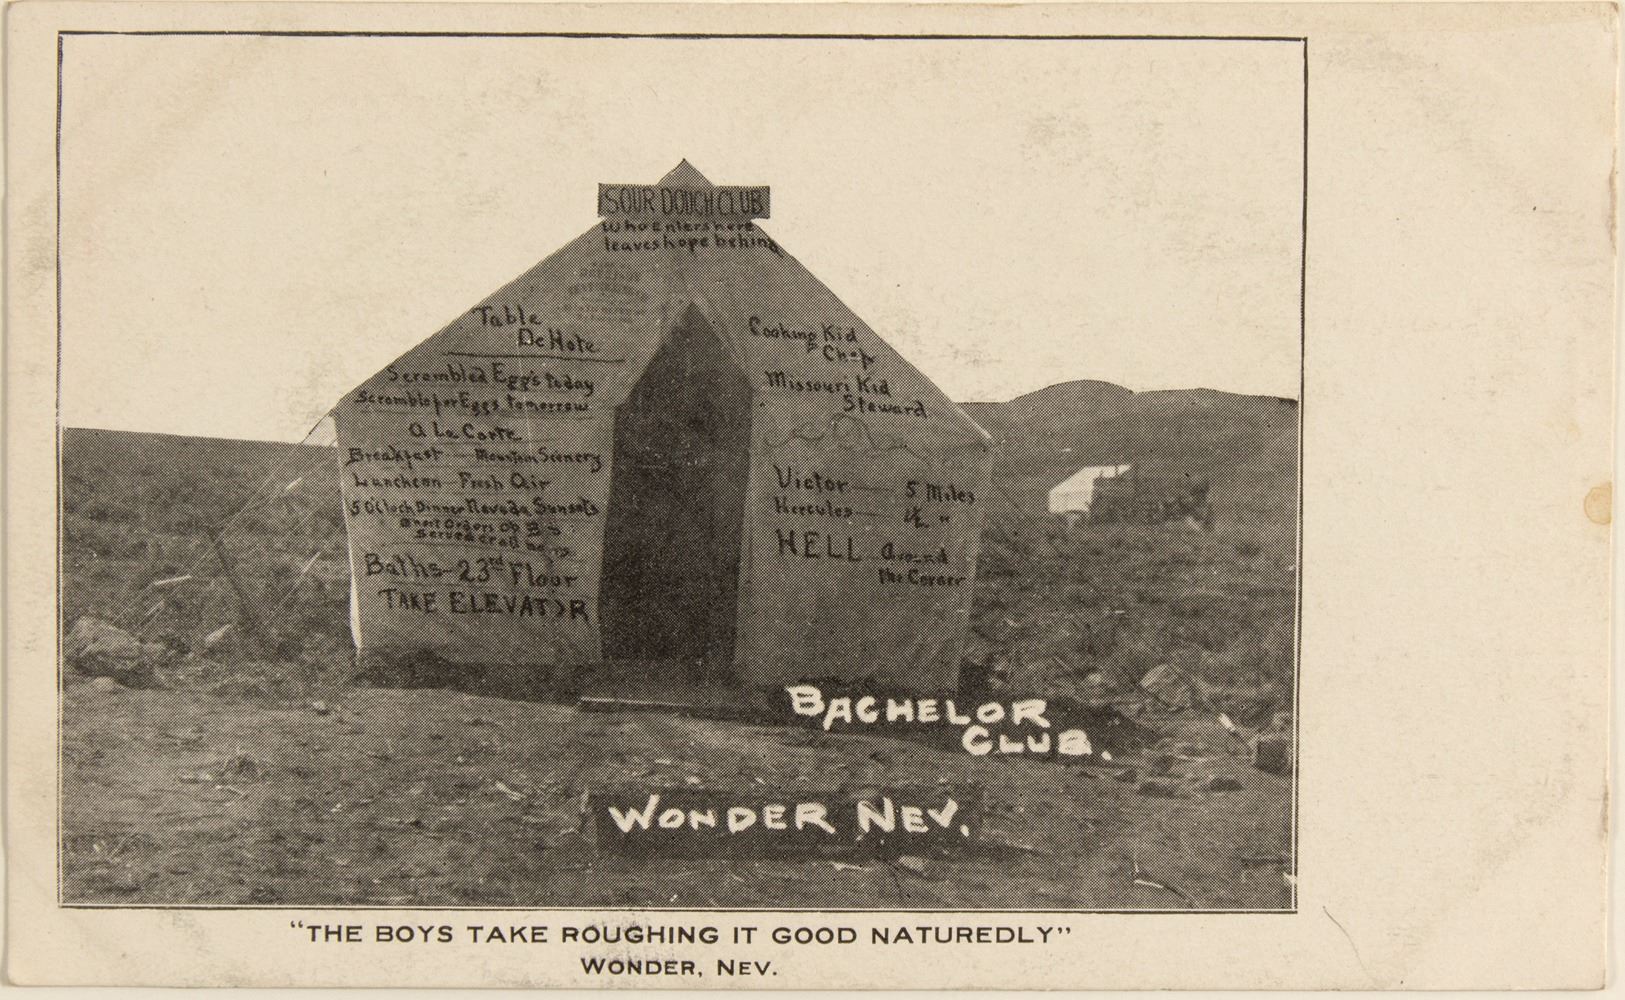 SOUR DOUGH CLUB
Who Enters here
leaves hope behind
Table
De Hote
Scrambled Eggs today
Scramble for Eggs tomorrow
A La Carte
Breakfast — Mountain Scenery
Luncheon — Fresh Air
5 O'Clock Dinner Nevada Sunsets
Short Orders
Served at all
Baths — 23rd Floor
TAKE ELEVATOR
Cooking Kid
Chef
Missouri Kid
Steward
Victor — 5 Miles
Hercules — "
HELL Around
the Corner
BACHELOR
CLUB.
WONDER NEV.
"THE BOYS TAKE ROUGHING IT GOOD NATUREDLY"
WONDER, NEV.